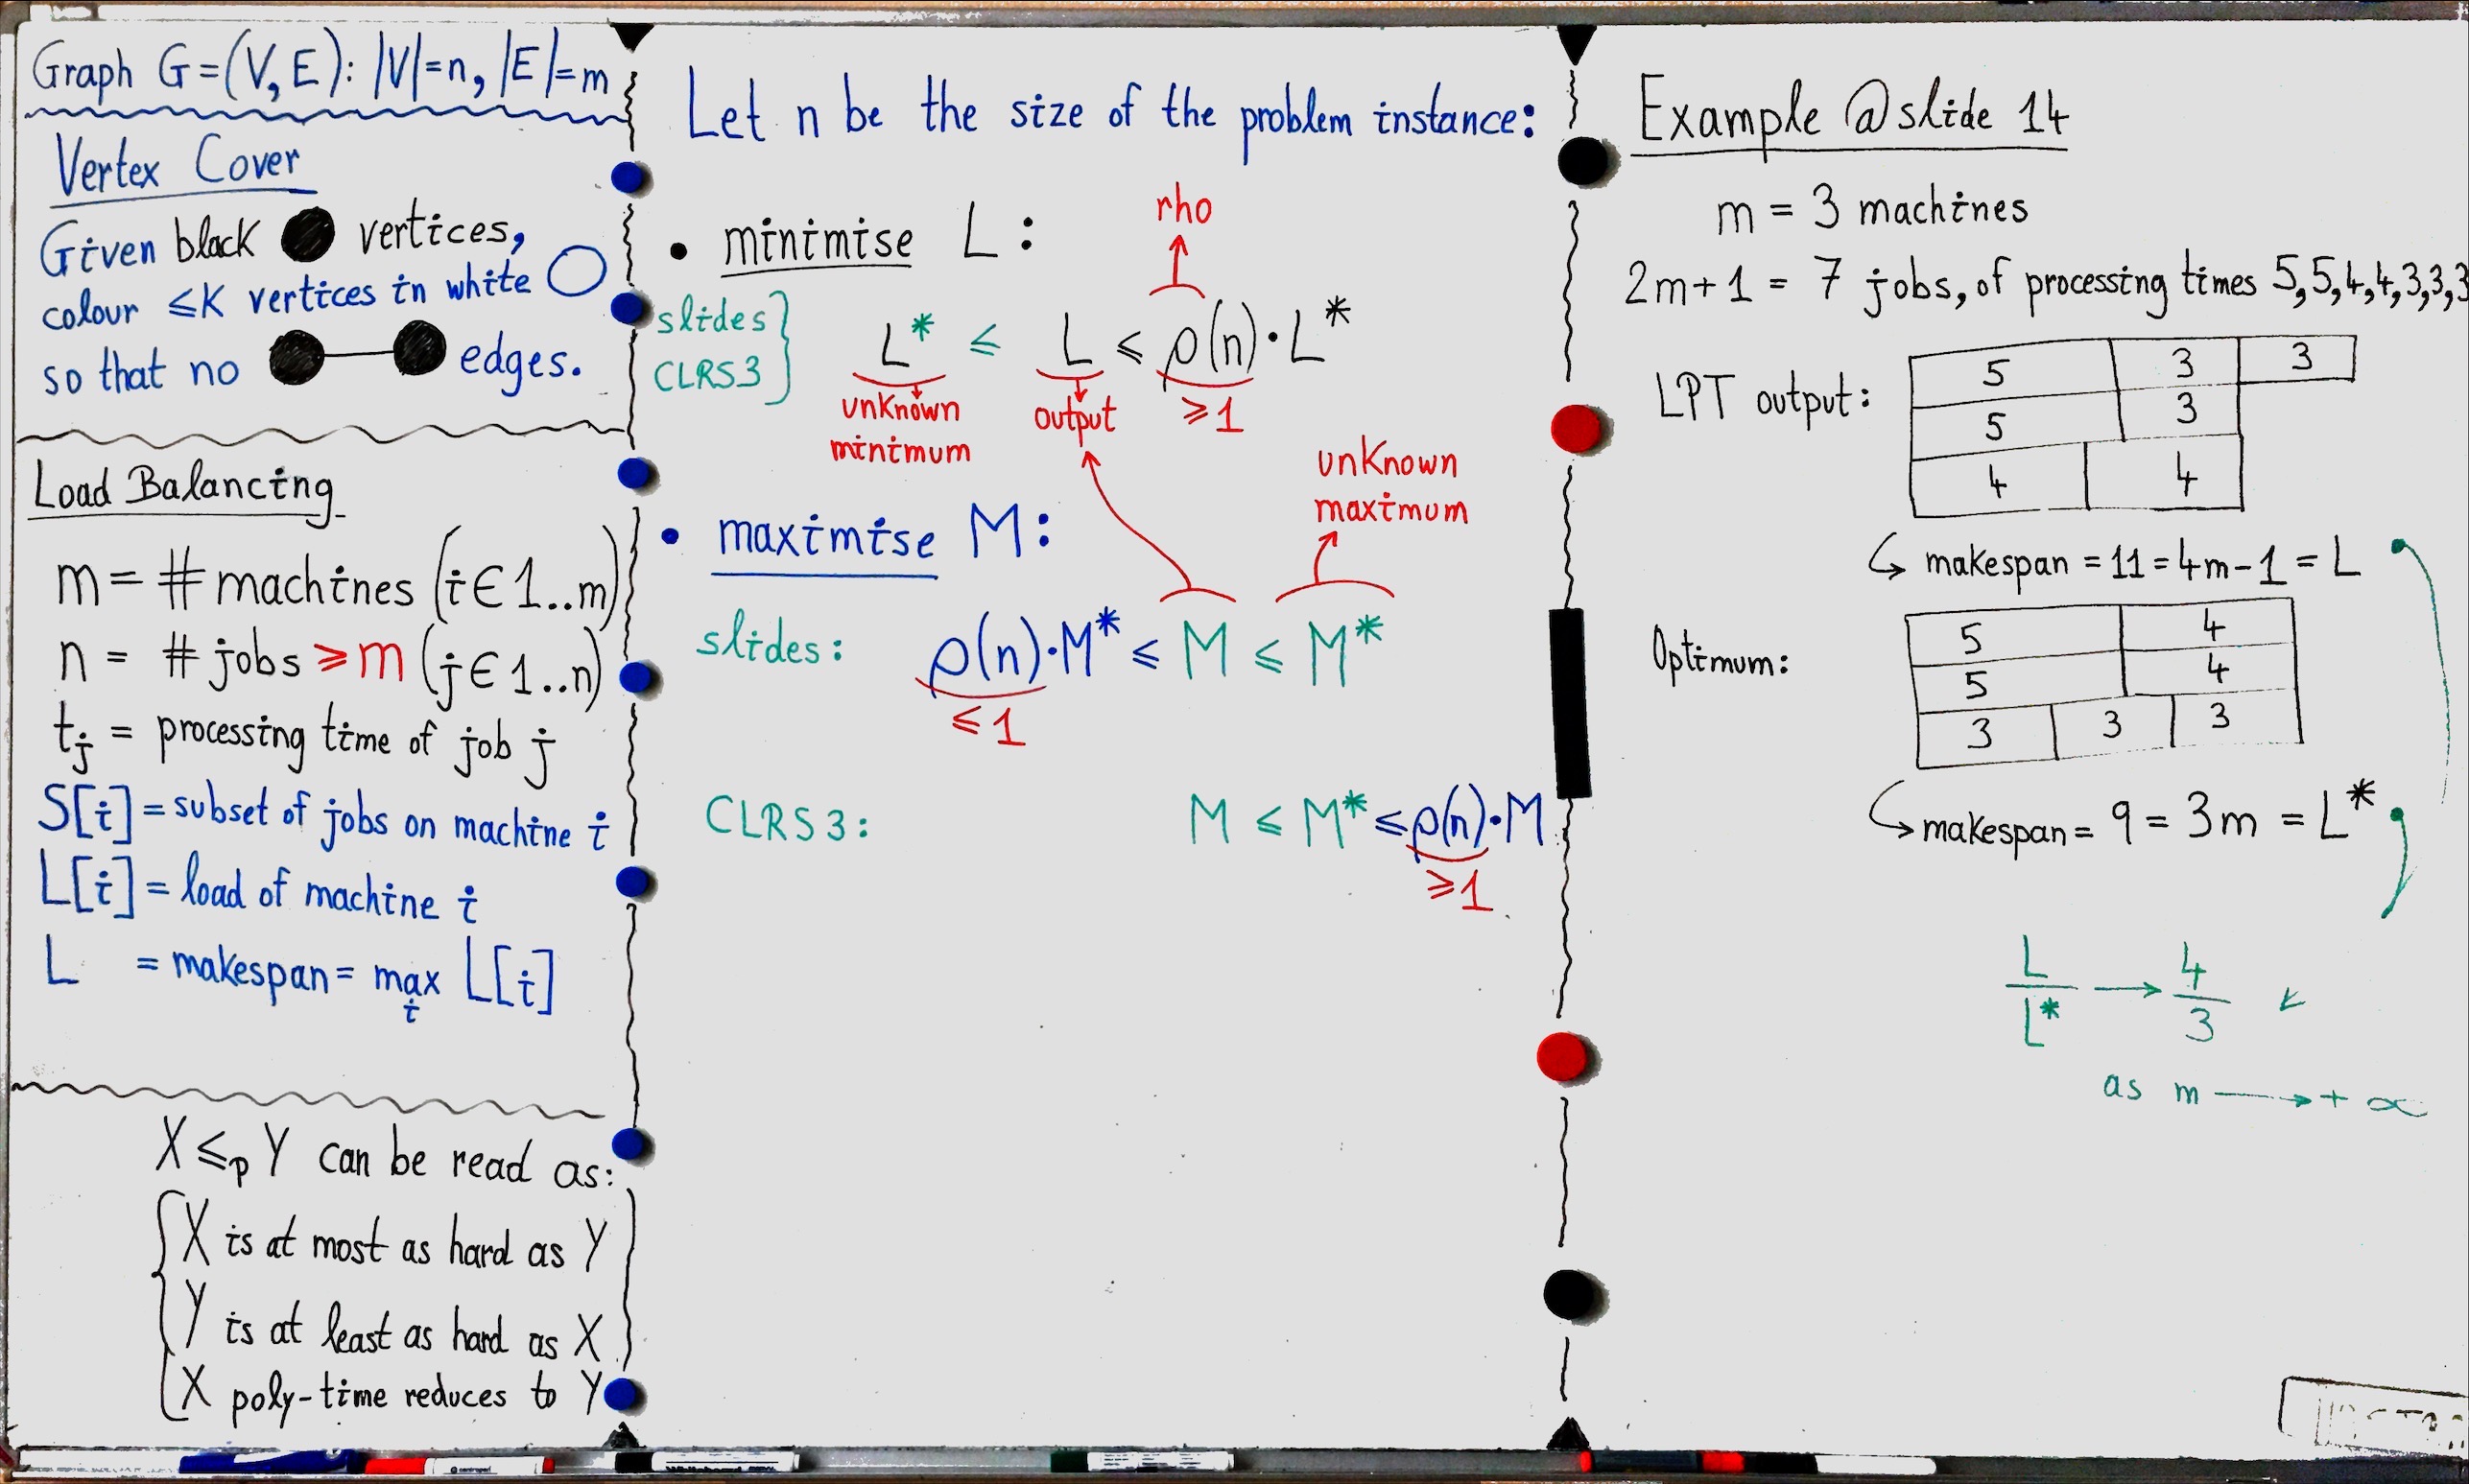 Graph G=(V,E): |V|=n, |E|=m
Vertex Cover
Given black vertices,
colour ≤K vertices in white
so that no edges.
Load Balancing
m = # machines (i∈1..m)
n = # jobs ≥m (j∈1..n)
tj = processing time of job j
S[i] = subset of jobs on machine i
L[i] = load of machine i
L = makespan = max L[i]
i
X ≤p Y can be read as:
X is at most as hard as Y
Y is at least as hard as X
X poly-time reduces to Y
Let n be the size of the problem instance:
• minimise L:
rho
slides
CLRS3
L* ≤ L ≤ ρ(n)·L*
unknown minimum
output
≥1
• maximise M:
unknown
maximum
slides: ρ(n)·M* ≤ M ≤ M*
≤1
CLRS3: M ≤ M* ≤ ρ(n)·M
≥1
Example @slide 14
m = 3 machines
2m+1 = 7 jobs, of processing times 5,5,4,4,3,3,3
LPT output:
5 3 3
5 3
4 4
makespan = 11 = 4m-1 = L
Optimum:
5 4
5 4
3 3 3
makespan = 9 = 3m = L*
L/L* → 4/3
as m → +∞